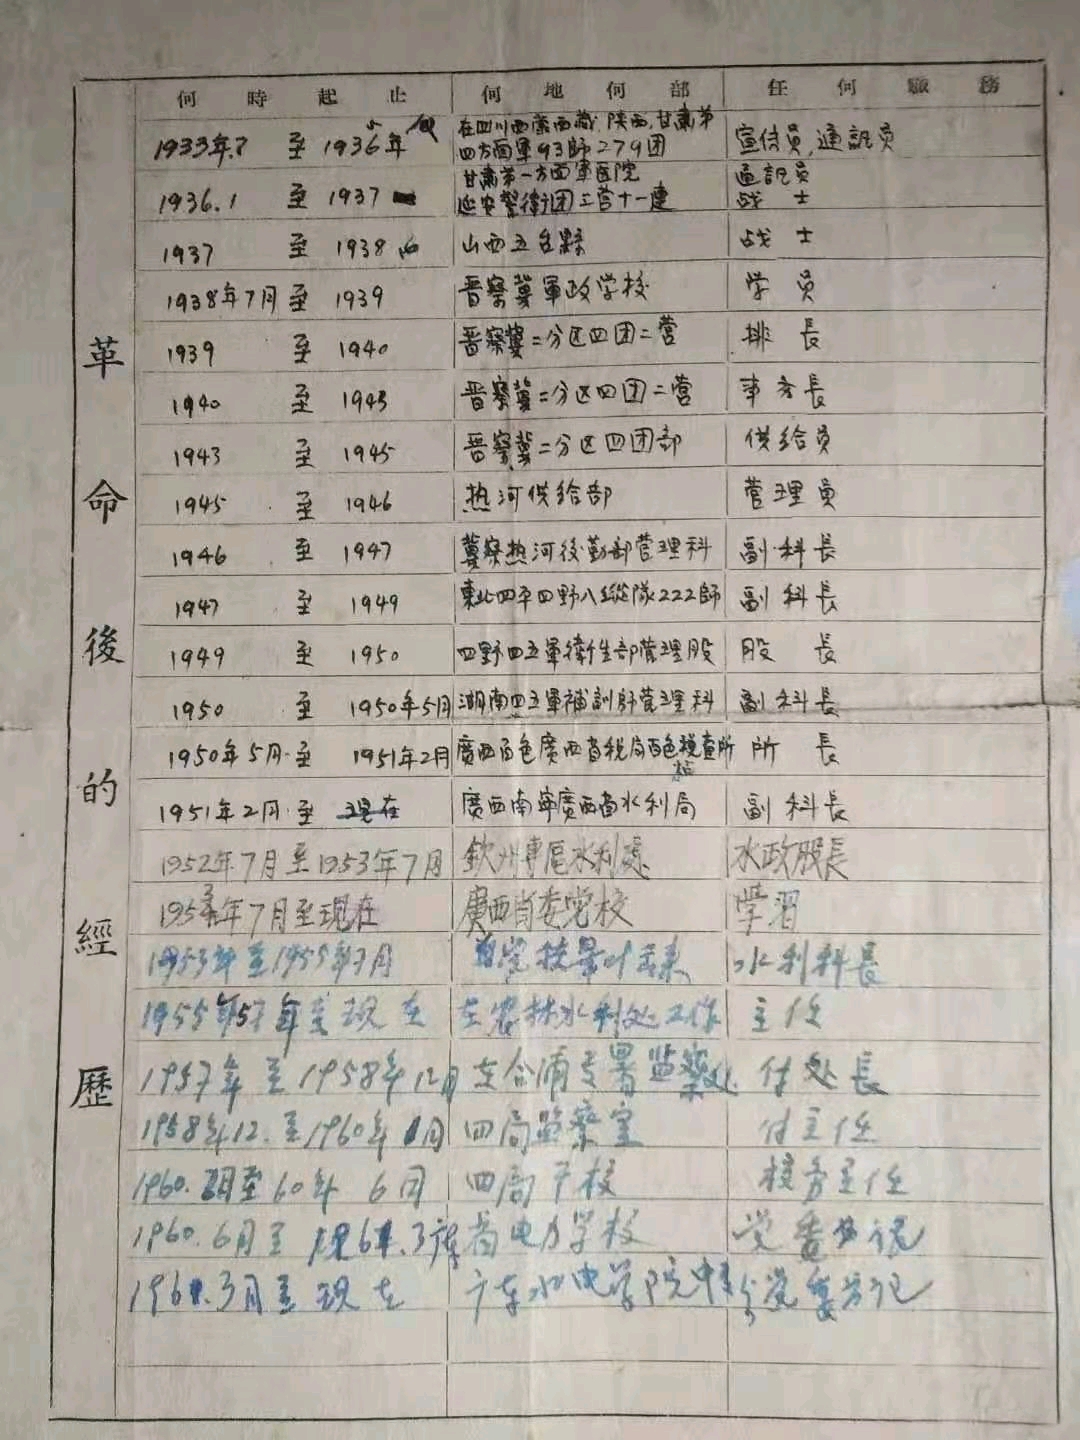 革命後的經歷
何時起止 何地何部 任何職務
在四川西康西藏、陕西、甘肃第
1933年.7 至 1936年 四方面軍93師279团 宣传员、通訊员
甘肃第一方面軍医院 通訊员
1936.1 至 1937 延安警衛团三营十一連 战士
1937 至 1938 山西五台縣 战士
1938年7月至 1939 晋察冀軍政学校 学员
1939 至 1940 晋察冀二分区四团二营 排長
1940 至 1943 晋察冀二分区四团二营 事务長
1943 至 1945 晋察冀二分区四团部 供给员
1945 至 1946 热河供给部 管理员
1946 至 1947 冀察热河後勤部管理科 副科長
1947 至 1949 東北四平四野八縱隊222師 副科長
1949 至 1950 四野四五軍衛生部管理股 股長
1950 至 1950年5月 湖南四五軍補訓師管理科 副科長
1950年5月至 1951年2月 廣西百色廣西省税局百色檢查所 所長
1951年2月至 現在 廣西南寧廣西省水利局 副科長
1952年7月至1953年7月 欽州專區水利處 水政股長
年7月至現在 廣西省委党校 学習
1953年至1955年7月 水利科長
1955年57年至现在 在农林水利处工作 主任
1957年至1958年12月 在合浦专署监察处 付处長
1958年12.至1960年1月 四局监察室 付主任
1960. 月至60年6月 四局干校 校务主任
1960.6月至 61.3 省电力学校 党委书记
1961.3月至现在 广东水电学院中 党委书记